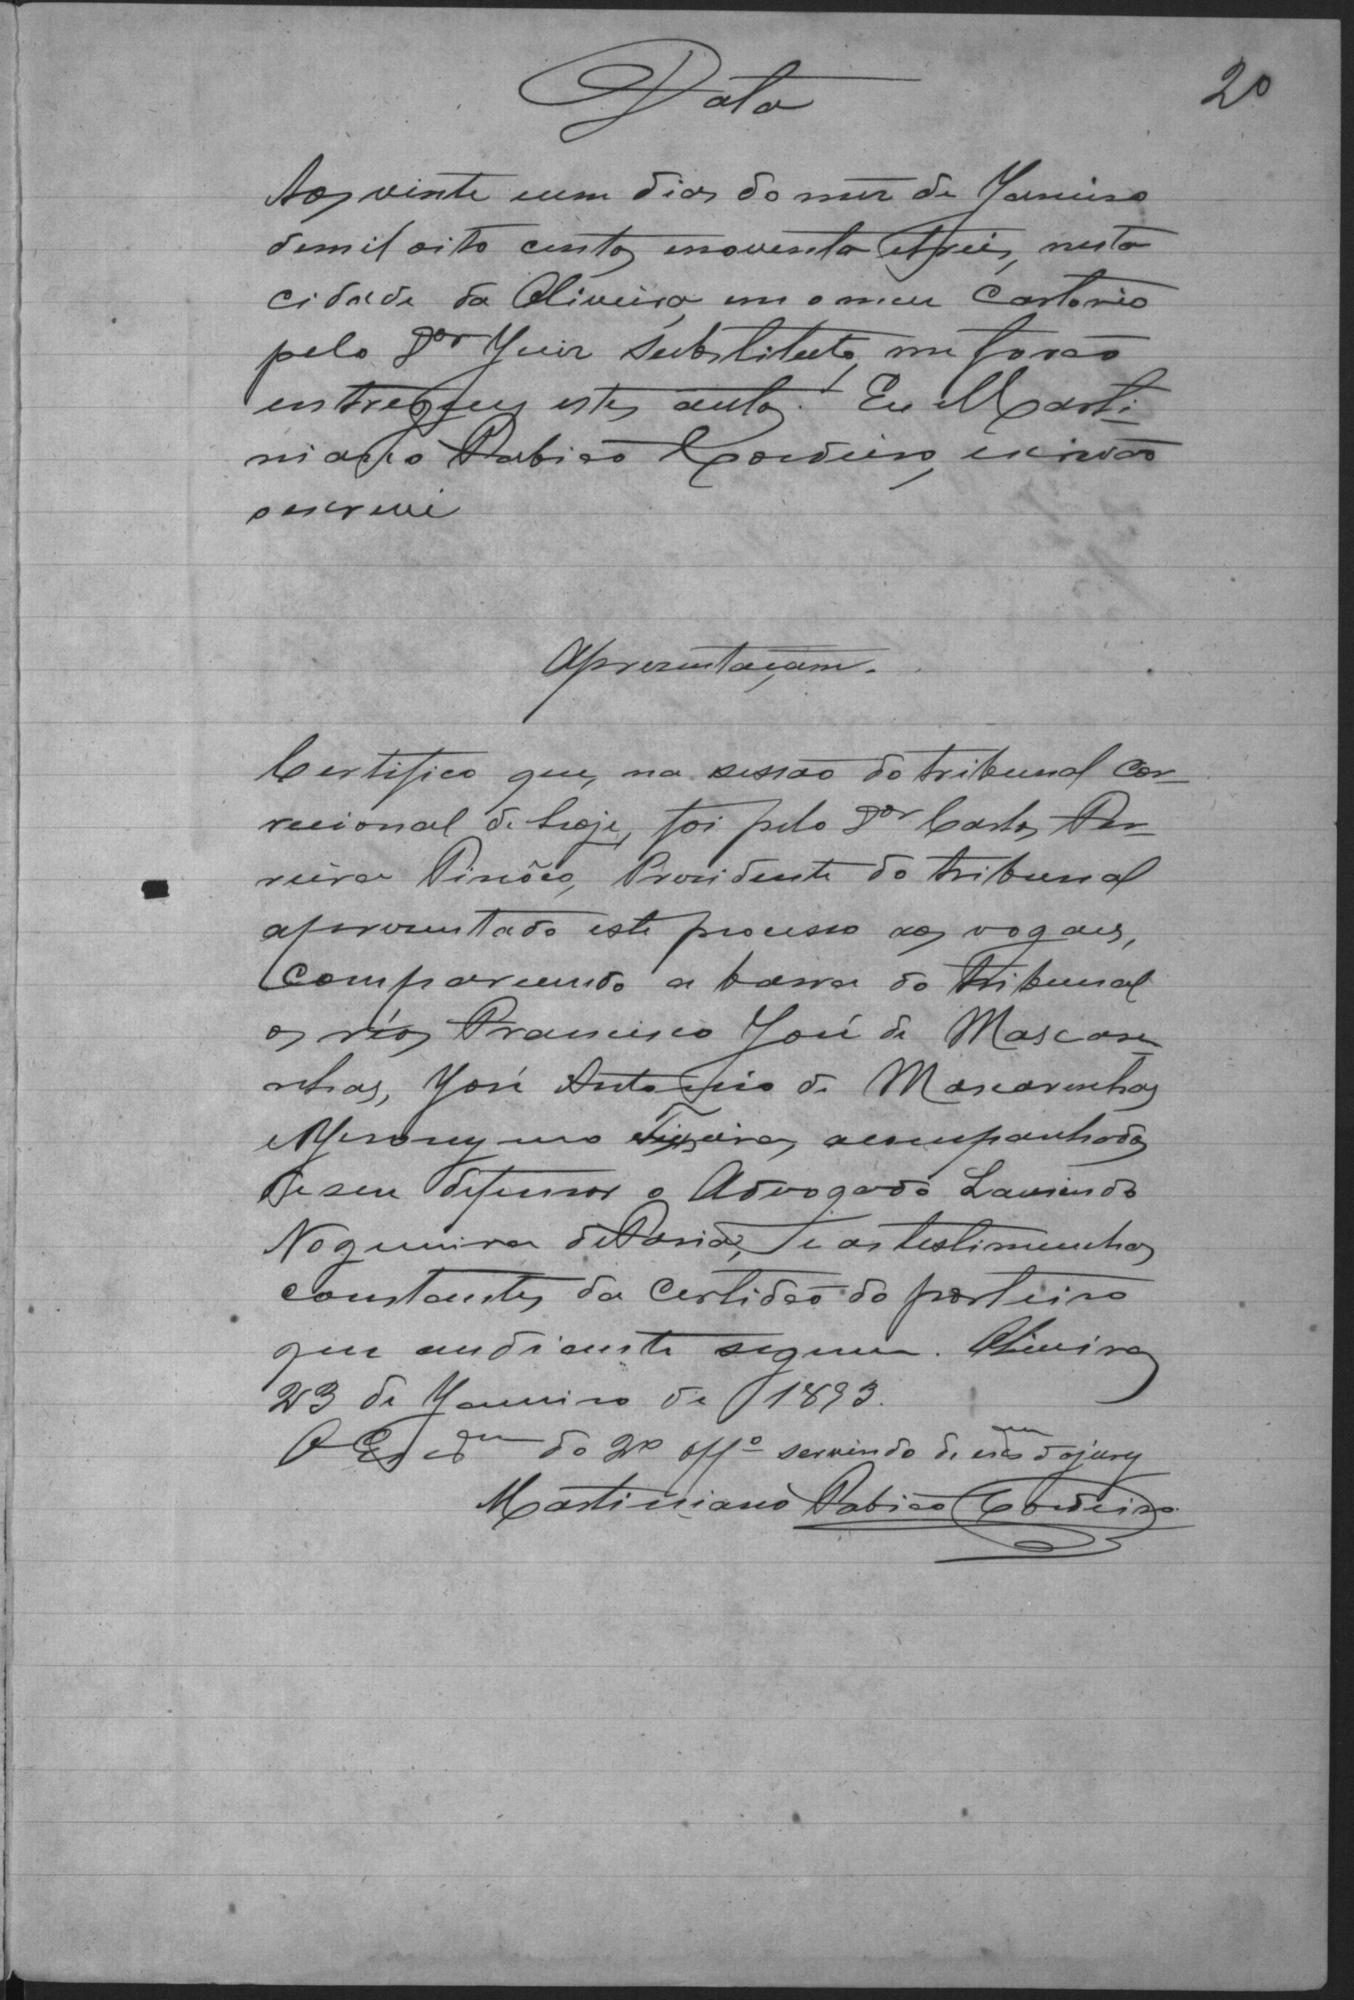 20
Data
Aos vinte e um dias do mez de Janeiro
de mil oito centos e noventa e tres, nesta
cidade da Oliveira, em o meu Cartorio
pelo Dor Juiz Substituto, me forão
entregues estes autos. Eu Marti-
niano Fabião Cordeiro, escrivão
o escrevi
Apresentaçam.
Certifico que, na sessão do tribunal cor-
reccional de hoje, foi pelo Dor Carlos Fer-
reira, Presidente do tribunal
apresentado este processo aos vogaes,
comparecendo a barra do tribunal
os réos Francisco José de Mascare-
nhas, José Antonio de Mascarenhas
e Jeronymo Teixeira, acompanhados
de seu defensor o Advogado
Nogueira de Faria, e as testimunhas
constantes da certidão do porteiro
que andiante segue. Oliveira,
23 de Janeiro de 1893.
O Escrm do 2º offº servindo de do jury
Martiniano Fabião Cordeiro